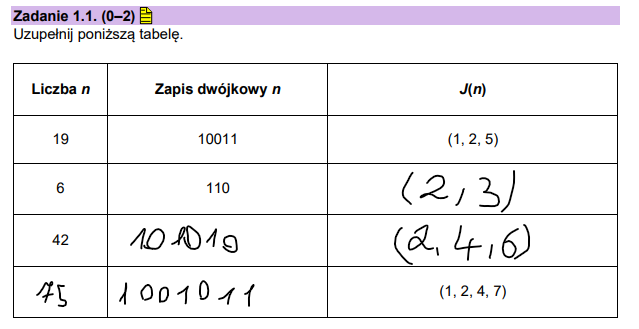 Zadanie 1.1. (0–2)
Uzupełnij poniższą tabelę.
Liczba n Zapis dwójkowy n J(n)
19 10011 (1, 2, 5)
6 110 (2, 3)
42 101010 (2, 4, 6)
75 1001011 (1, 2, 4, 7)